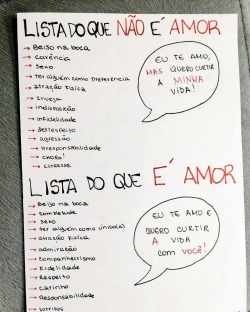 LISTA DO QUE NÃO É AMOR
→ Beijo na boca
→ carência
→ sexo
→ ter alguém como preferência
→ atração física
→ inveja
→ indisposição
→ infidelidade
→ desrespeito
→ agressão
→ irresponsabilidade
→ CHORO!
→ estresse
EU TE AMO,
MAS QUERO CURTIR
A MINHA
VIDA!
LISTA DO QUE É AMOR
→ Beijo na boca
→ Sexo
→ ter alguém como único(a)
→ atração física
→ admiração
→ companheirismo
→ Fidelidade
→ Respeito
→ carinho
→ Responsabilidade
→ sorrisos
EU TE AMO E
QUERO CURTIR
A VIDA
COM VOCÊ!